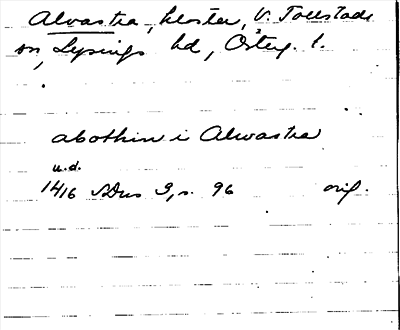 Alvastra, kloster, V. Tollstads
sn, Lysings hd, Österg. l.
abothin i Alwastra
u.d.
1416 SDns 3, s. 96 orig.